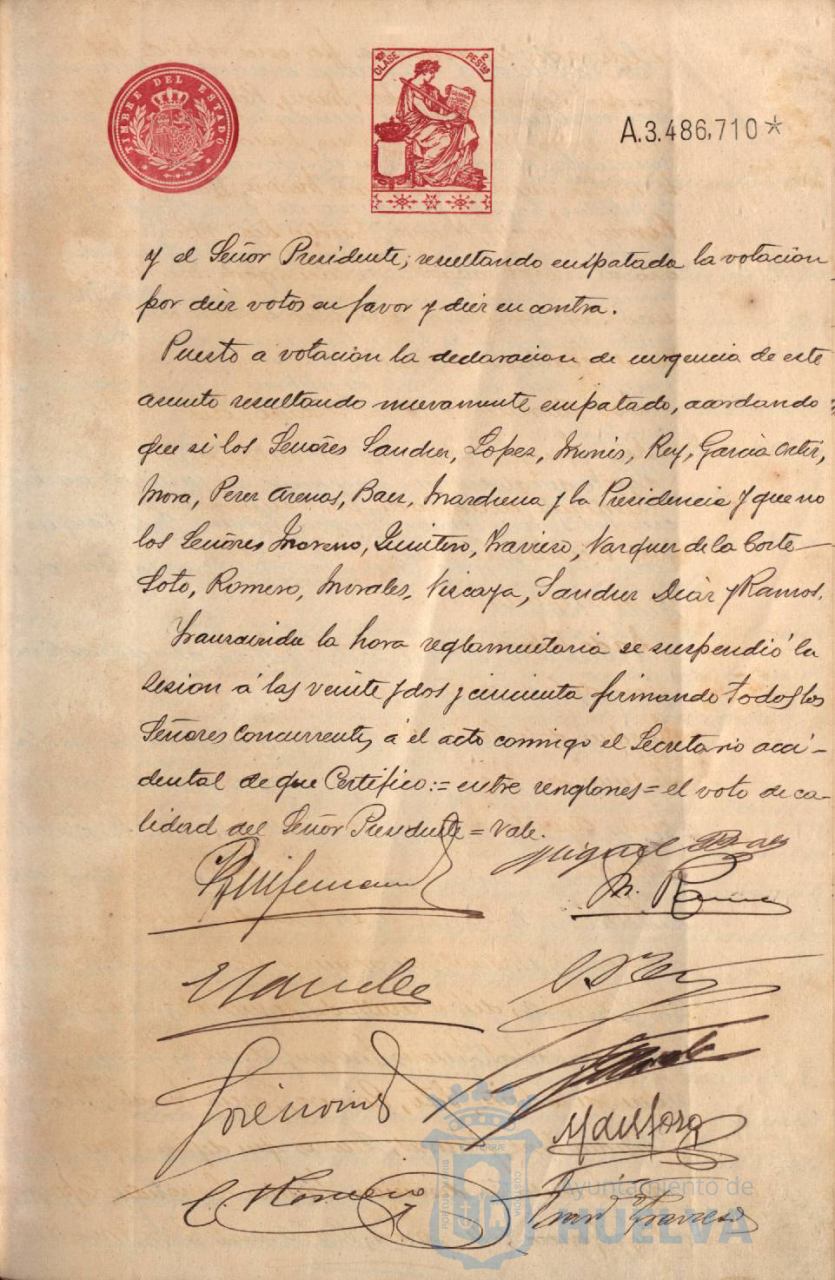 TIMBRE DEL ESTADO
10ª CLASE 2 PESTAS
A.3.486,710*
y el Señor Presidente; resultando empatada la votacion
por diez votos en favor y diez en contra.
Puesto a votacion la declaracion de urgencia de este
asunto resultando nuevamente empatado, acordando
que si los Señores Sanchez, Lopez, Monis, Rey, Garcia Ortiz,
Mora, Perez Arenas, Baez, Marchena y la Presidencia y que no
los Señores Moreno, Quintero, Travieso, Vazquez de la Corte
Soto, Romero, Morales, Vizcaya, Sanchez Diaz y Ramos.
Transcurrida la hora reglamentaria se suspendió la
sesion á las veinte y dos y cincuenta firmando todos los
Señores Concurrentes á el acto conmigo el Secretario acci-
dental de que Certifico:= entre renglones = el voto de ca-
lidad del Señor Presidente = Vale.
Miguel Baez
M. R
José Monis
Man Mora
C. Romero
Travieso
Ayuntamiento de
HUELVA